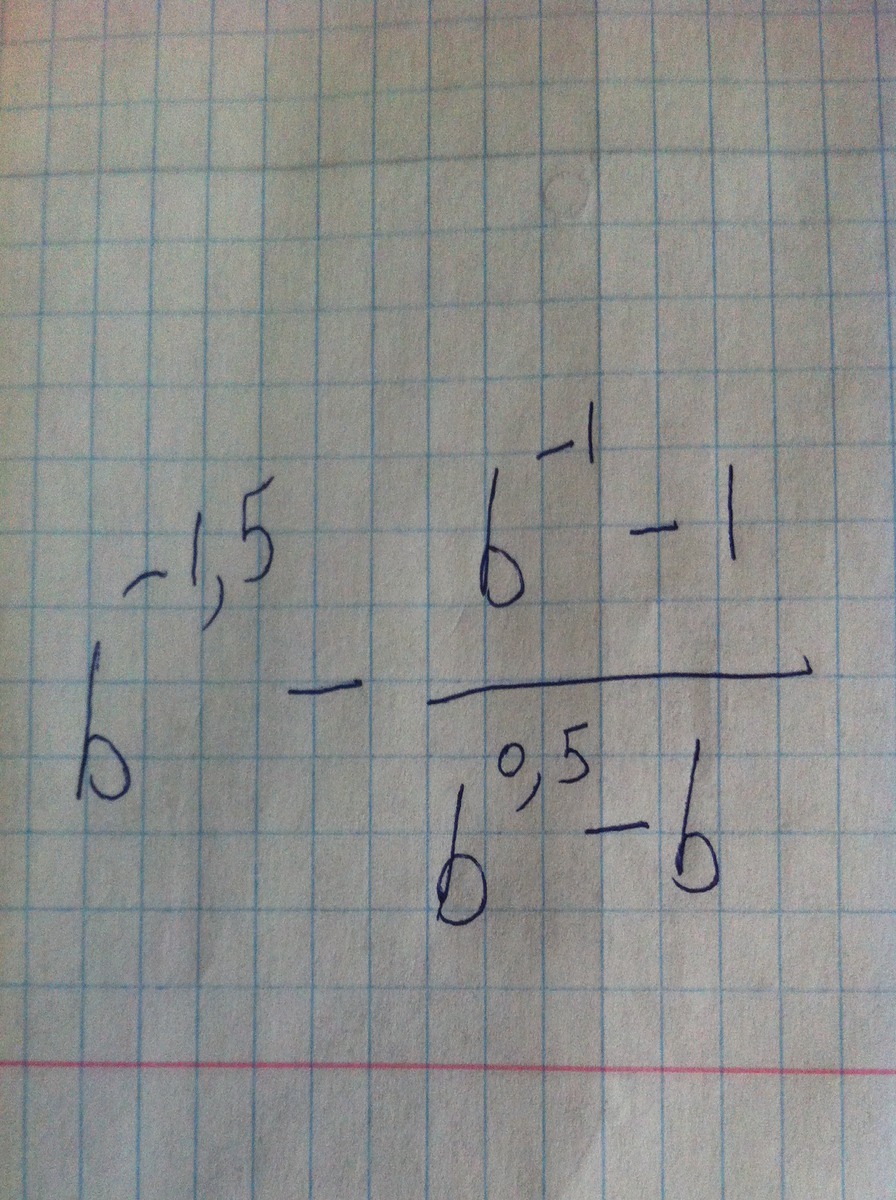 b^{-1,5} - \frac{b^{-1} - 1}{b^{0,5} - b}